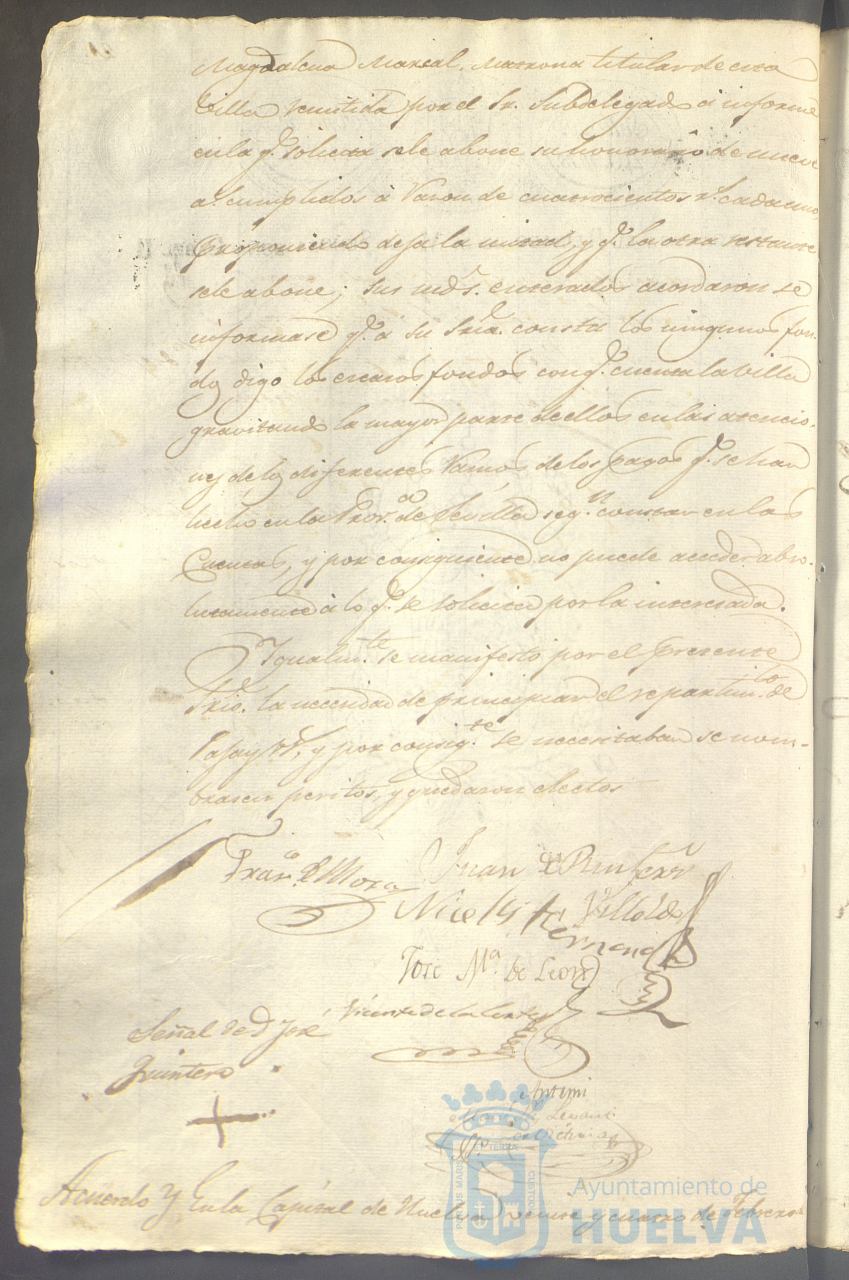 Magdalena Marcal. Matrona titular de esta
Villa remitida por el Sr. Subdelegado a informe
en la q.e solicita se le abone su honorario de nueve
a.s cumplidos à razon de cuatrocientos r.s cada uno
proponiendo deja la mitad, y q.e la otra restante
se le abone; sus mds. enterados acordaron se
informase q.e a su Sria. consta los ningunos fon-
dos digo los escasos fondos con q.e cuenta la Villa
gravitando la mayor parte de ellos en las atencio-
nes de los diferentes ramos de los pagos q.e se han
hecho en la Prov.a de Sevilla seg.n constar en las
Cuentas, y por consiguiente no puede acceder abso-
lutamente à lo q.e se solicita por la interesada.
Igualm.te se manifesto por el presente
Srio. la necesidad de principiar el repartim.to de
Paja y, y por consig.te se necesitaban se nom-
brasen peritos, y quedaron electos
Fran.co de Mora
Juan
Nicolas Hernandez
José M.a de Leon
Vicente de la Corte
Señal de D. José
Quintero
Antemi
Acuerdo Y En la Capital de Huelva veinte y cuatro de Febrero
PORTUS MARIS
TERRAE
CUSTODIA
Ayuntamiento de
HUELVA